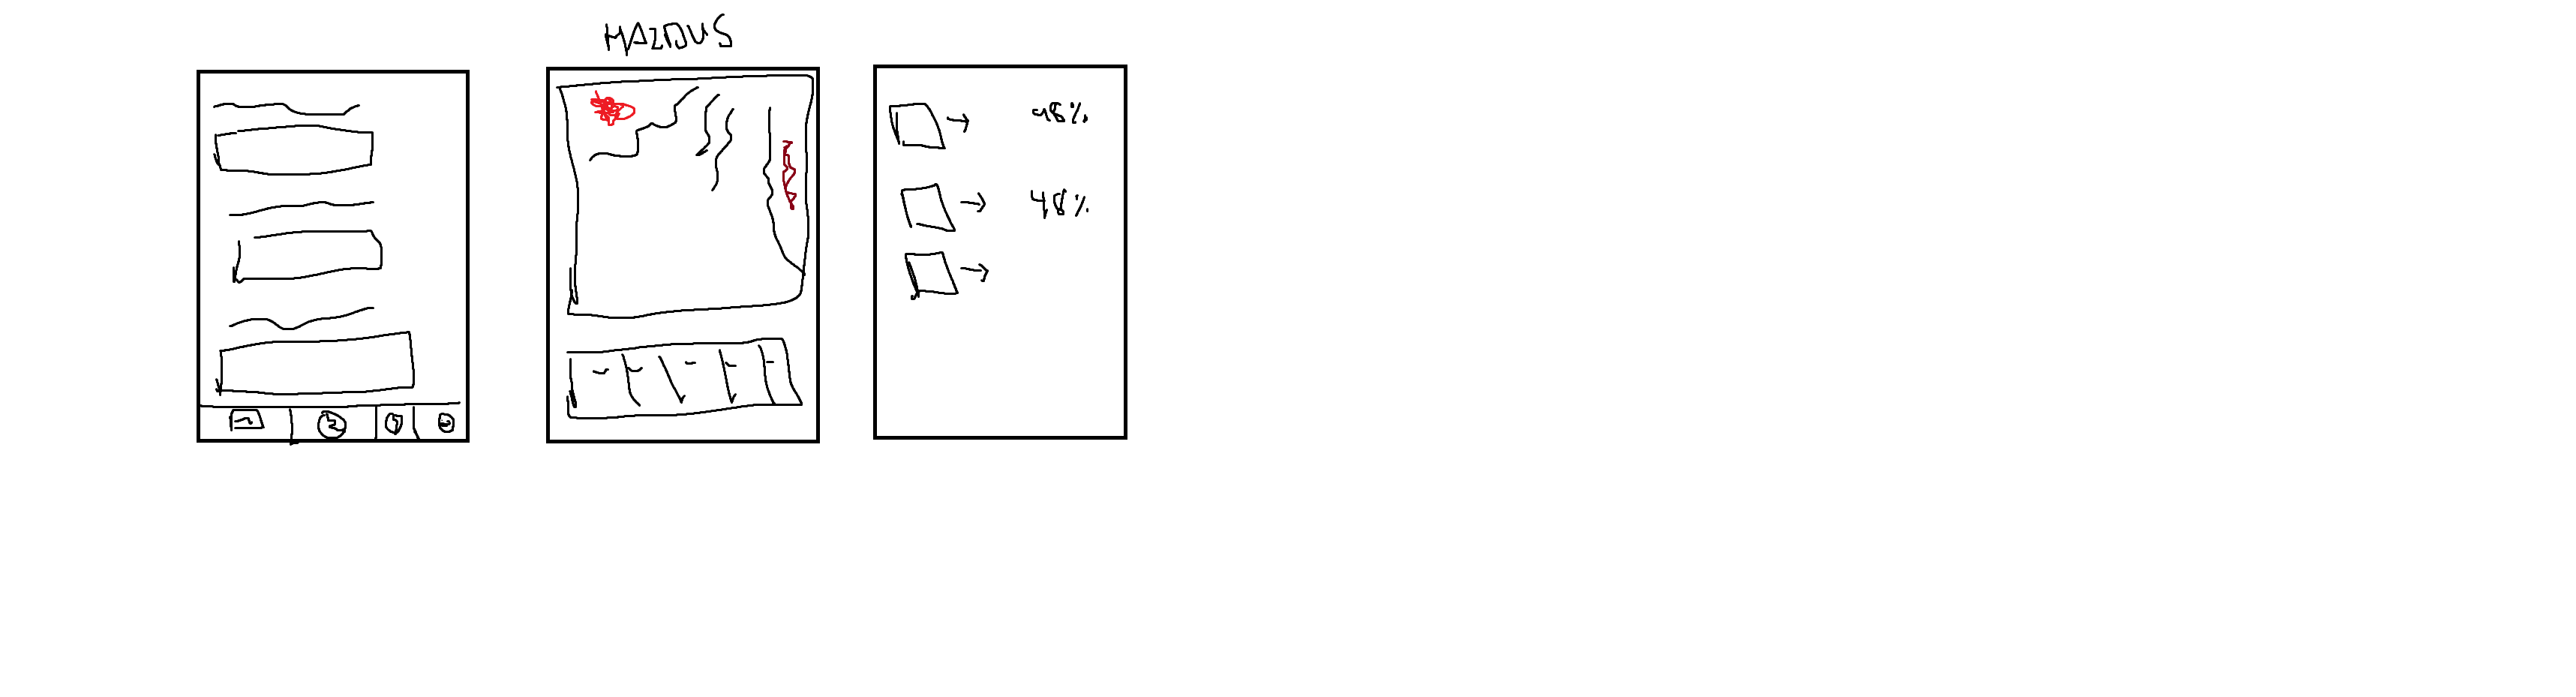 HAZDUS
98%
48%